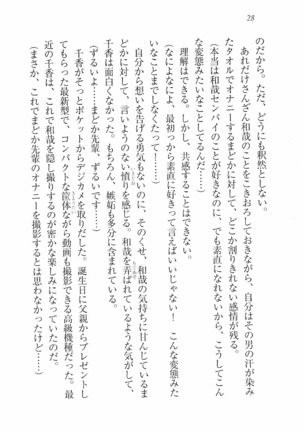 28
のだから。ただ、どうにも釈然としない。
あれだけさんざん和哉のことをこきおろしておきながら、自分はその男の汗が染み
たタオルでオナニーするまどかに対して、どこか割りきれない感情が残る。
(本当は和哉センパイのことが好きなのに、でも素直になれないから、こうしてこん
な変態みたいなことしてるんだ……)
理解はできる。しかし、共感することはできない。
(なによなによ、最初っから素直に好きって言えばいいじゃない! こんな変態みた
いなことまでしなくたって……)
自分から想いを告げる勇気もないのに、そのくせ、和哉の気持ちに甘んじているま
どかに対して、言いようのない憤りを感じる。和哉を弄ばれているような気がして、
千香は面白くなかった。もちろん、嫉妬も多分に含まれている。
(ずるいよ……まどか先輩、ずるいです……)
千香がそっとポケットからデジカメを取りだした。誕生日に父親からプレゼントし
てもらった最新型で、コンパクトな筐体ながら動画も撮影できる高級機種だった。最
近の千香は、これで和哉を隠し撮りするのが密かな楽しみになっていたのだ。
(まさか、これでまどか先輩のオナニーを撮影するとは思わなかったけど……)